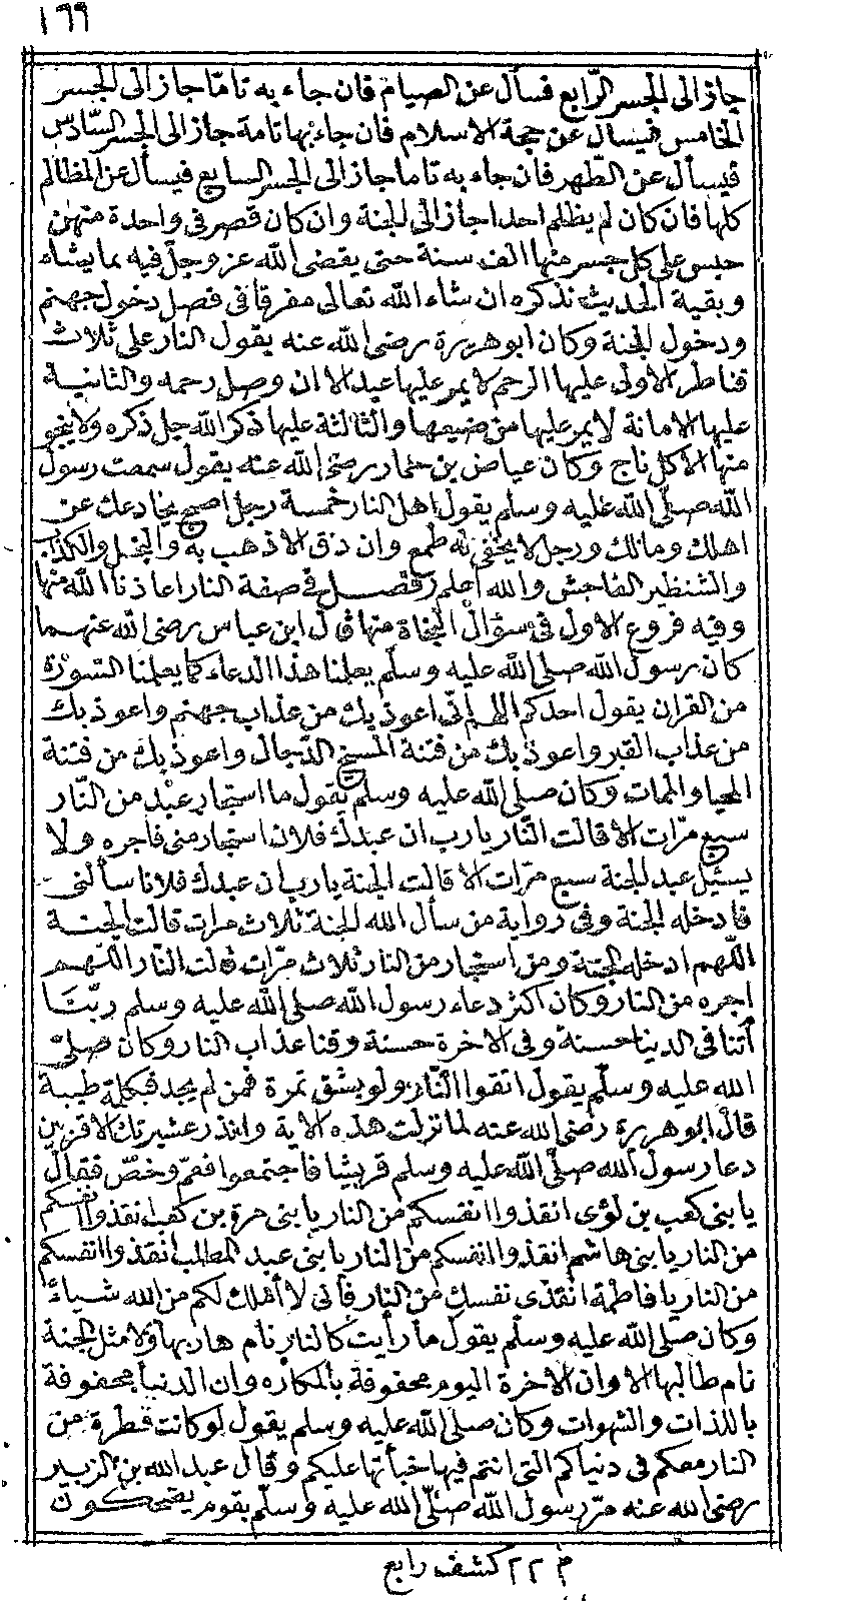 ١٦٩
جاز الى الجسر الرّابع فسأل عن الصيام فان جاء به تامّا جاز الى الجسر
الخامس فيسأل عن حجة الاسلام فان جاء بها تامة جاز الى الجسر السّادس
فيسأل عن الطّهر فان جاء به تاما جاز الى الجسر السابع فيسأل عن المظالم
كلها فان كان لم يظلم احدا جاز الى الجنة وان كان قصر في واحدة منهن
حبس على كل جسر منها الف سنة حتى يقضى الله عز وجل فيه بما يشاء
وبقية الحديث نذكره ان شاء الله تعالى مفرقا في فصل دخول جهنم
ودخول الجنة وكان ابو هريرة رضى الله عنه يقول النار على ثلاث
قناطر الاولى عليها الرحم لا يمر عليها عبد الا ان وصل رحمه والثانية
عليها الامانة لا يمر عليها من ضيعها والثالثة عليها ذكر الله جل ذكره ولا ينجو
منها الا كل ناج وكان عياض بن حمار رضى الله عنه يقول سمعت رسول
الله صلّى الله عليه وسلم يقول اهل النار خمسة رجل اصبح يخادعك عن
اهلك ومالك ورجل لا يخفى له طمع وان دق الا ذهب به والبخل والكذب
والشنظير الفاحش والله اعلم فصل في صفة النار اعاذنا الله منها
وفيه فروع الاول في سؤال النجاة منها قال ابن عباس رضى الله عنهما
كان رسول الله صلى الله عليه وسلّم يعلمنا هذا الدعاء كما يعلمنا السّورة
من القرآن يقول احدكم اللهم انّى اعوذ بك من عذاب جهنم واعوذ بك
من عذاب القبر واعوذ بك من فتنة المسيح الدّجال واعوذ بك من فتنة
المحيا والممات وكان صلى الله عليه وسلم يقول ما استجار عبد من النّار
سبع مرّات الا قالت النّار يا رب ان عبدك فلان استجار منى فاجره ولا
يسئل عبد الجنة سبع مرّات الا قالت الجنة يا رب ان عبدك فلانا سألنى
فادخله الجنة وفى رواية من سأل الله الجنة ثلاث مرات قالت الجنة
اللّهم ادخله الجنة ومن استجار من النار ثلاث مرّات قالت النّار اللّهم
اجره من النار وكان اكثر دعاء رسول الله صلى الله عليه وسلم ربّنا
أتنا فى الدينا حسنة وفى الاخرة حسنة وقنا عذاب النار وكان صلّى
الله عليه وسلّم يقول اتقوا النّار ولو بشق تمرة فمن لم يجد فبكلمة طيبة
قال ابو هريرة رضى الله عنه لما نزلت هذه الاية وانذر عشيرتك الاقربين
دعا رسول الله صلّى الله عليه وسلم قريشا فاجتمعوا فعمّ وخصّ فقال
يا بنى كعب بن لؤى انقذوا انفسكم من النار يا بنى مرة بن كعب انقذوا انفسكم
من النار يا بنى هاشم انقذوا انفسكم من النار يا بنى عبد المطلب انقذوا انفسكم
من النار يا فاطمة انقذى نفسك من النار فانى لا أملك لكم من الله شياءً
وكان صلى الله عليه وسلّم يقول ما رأيت كالنار نام هاربها ولا مثل الجنة
نام طالبها الا وان الاخرة اليوم محفوفة بالمكاره وان الدنيا محفوفة
باللذات والشهوات وكان صلى الله عليه وسلم يقول لو كانت قطرة من
النار معكم فى دنياكم التى انتم فيها خبأتها عليكم وقال عبد الله بن الزبير
رضى الله عنه مرّ رسول الله صلّى الله عليه وسلّم بقوم يضحكون
م ٢٢ كشف رابع